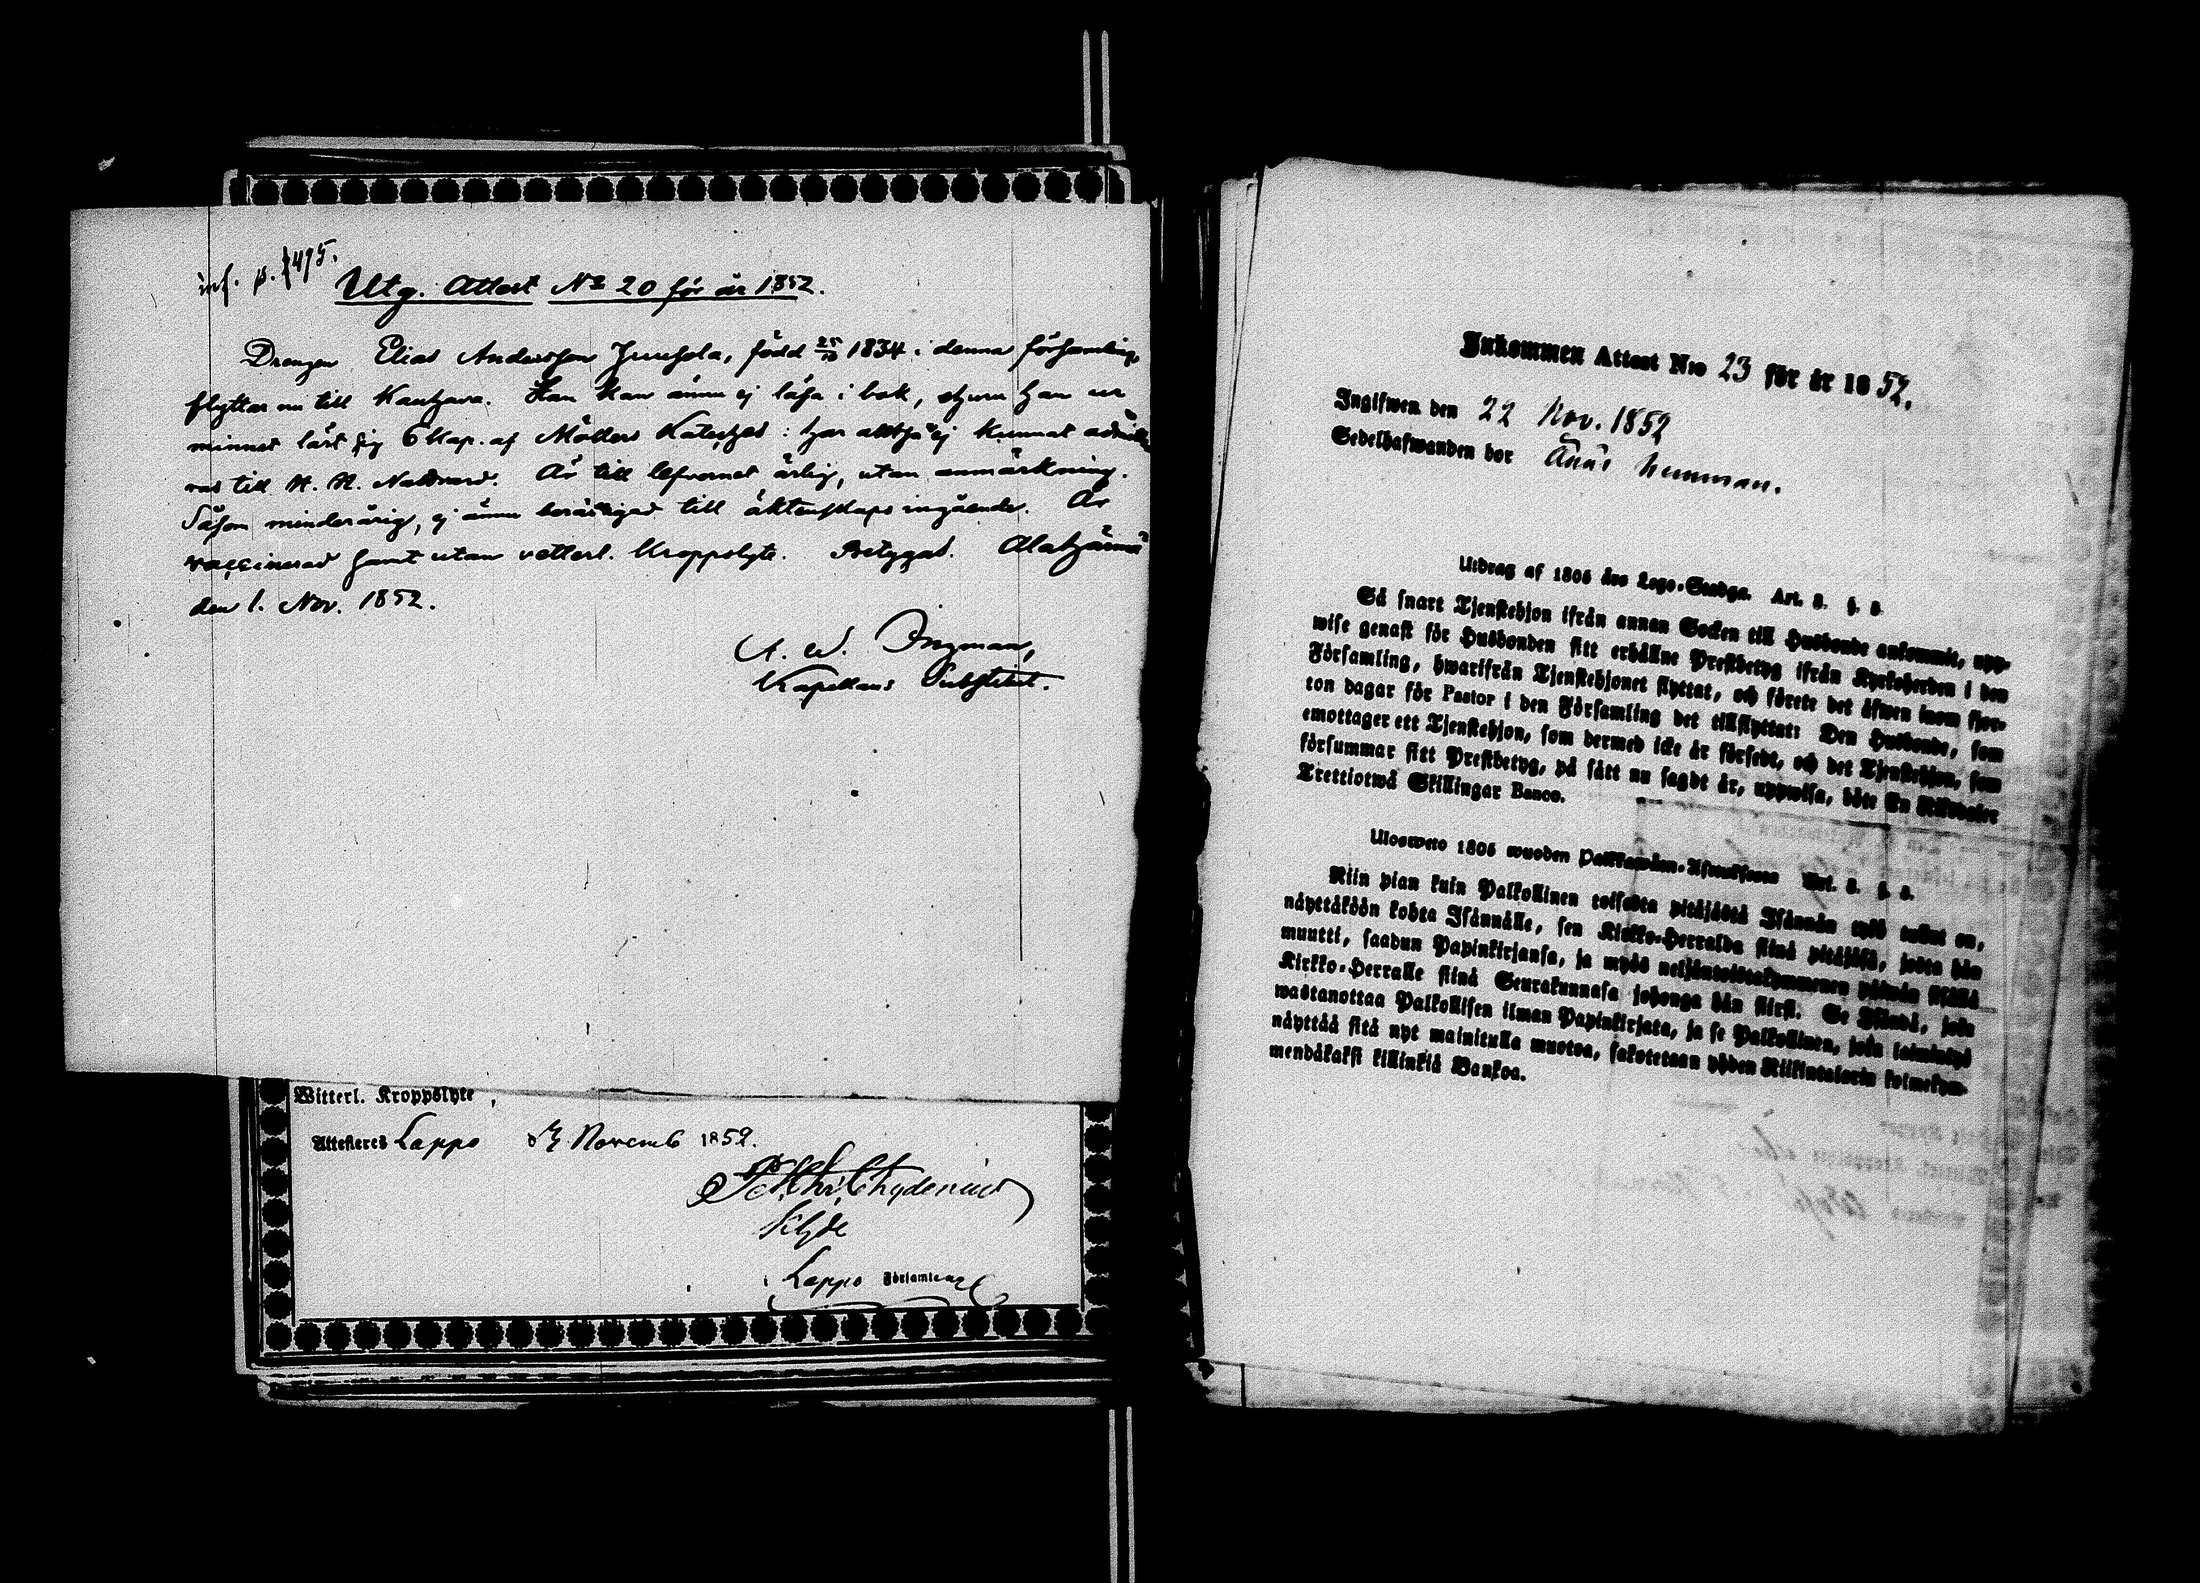 inf. p. 1495.
Utg. Attest No 20 för år 1852.
Drengen Elias Andersson Juuhola, född 25/10 1834 i denna församling,
flyttar nu till Kauhava. Han kan ännu ej läsa i bok, ehuru han ur
minnet lärt sig 6 Kap. af Möllers Kateches: har alltså ej kunnat admitte
ras till H. H. Nattvard. Är till lefvernet ärlig, utan anmärkning.
Såsom minderårig, ej ännu berättigad till äktenskaps ingående. Är
vaccinerad samt utan vetterl. kroppslyte. Betygas. Alahärmä
den 1. Nov. 1852.
A. W. Ingman,
Kapellans Substitut.
Witterl. Kroppslyte,
Attesteras Lappo d. Novemb 1852.
Chydenius
Lappo Församling
Inkommen Attest N:o 23 för år 1852.
Ingifwen den 22 Nov. 1852
Sedelhafwanden bor
Utdrag af 1805 års Lego-Stadga. Art. 3. §. 8.
Så snart Tjenstehjon ifrån annan Socken till Husbonde ankommit, upp-
wise genast för Husbonden sitt erhållne Prestbetyg ifrån Kyrkoherden i den
Församling, hwarifrån Tjenstehjonet flyttat, och förete det äfwen inom fjor-
ton dagar för Pastor i den Församling det tillflyttat: Den Husbonde, som
emottager ett Tjenstehjon, som dermed icke är försedt, och det Tjenstehjon, som
försummar sitt Prestbetyg, på sätt nu sagdt är, uppwisa, böte En Riksdaler
Trettiotwå Skillingar Banco.
Ulosweto 1805 wuoden Palkkawäen-Asetuksesta Art. 3. §. 8.
Niin pian kuin Palkollinen toisesta pitäjästä Isännän tygö tullut on,
näyttäköön kohta Isännälle, sen Kirkko-Herralda siinä pitäjäsä, josta hän
muutti, saadun Papinkirjansa, ja myös neljäntoistakymmenen päiwän sisällä
Kirkko-Herralle siinä Seurakunnasa johonga hän siirsi. Se Isändä, joka
wastanottaa Palkollisen ilman Papinkirjata, ja se Palkollinen, joka laiminlyö
näyttää sitä nyt mainitulla muotoa, sakotetaan yhden Riikintalorin kolmekym-
mendäkaksi killinkiä Bankoa.